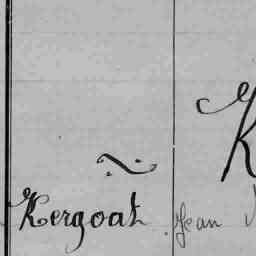 Kergoat Jean